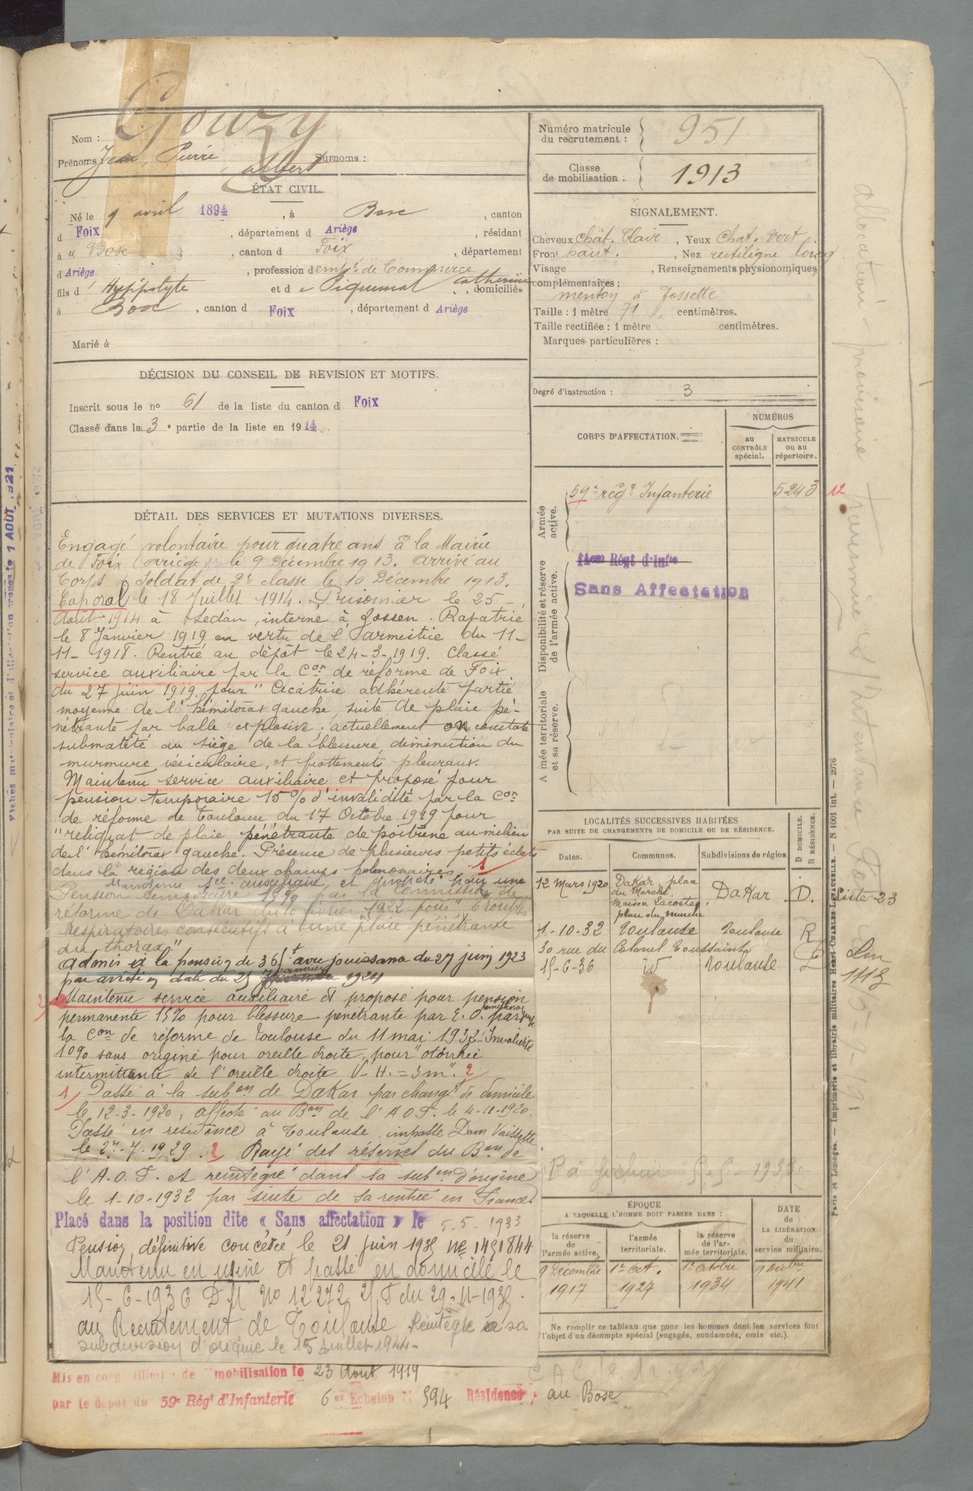 Nom : Gouzy
Prénoms : Jean Pierre Surnoms :
albert
ÉTAT CIVIL.
Né le 9 avril 1894, à Bosc, canton
d Foix, département d Ariège, résidant
à " Bosc, canton d Foix, département
d Ariège, profession d emp. de Commerce
fils d' Hyppolyte et d e Piquemal Catherine, domiciliés
à Bosc, canton d Foix, département d Ariège
Marié à
DÉCISION DU CONSEIL DE REVISION ET MOTIFS.
Inscrit sous le no 61 de la liste du canton d Foix
Classé dans la 3e partie de la liste en 1914.
DÉTAIL DES SERVICES ET MUTATIONS DIVERSES.
Engagé volontaire pour quatre ans à la Mairie
de Foix (ariège) le 9 Décembre 1913. Arrivé au
Corps & Soldat de 2e classe le 10 Décembre 1913.
Caporal le 18 Juillet 1914. Prisonnier le 25
Août 1914 à Sedan, interné à Zossen. Rapatrié
le 8 Janvier 1919 en vertu de l'armistice du 11-
11- 1918. Rentré au dépôt le 24-3-1919. Classé
service auxiliaire par la Con de réforme de Foix
du 27 juin 1919 pour " Cicatrice adhérente partie
moyenne de l'hémitorax gauche suite de plaie pé-
nétrante par balle explosive ; actuellement on constate
submatité au siège de la blessure, diminution du
murmure vésiculaire, et frottements pleuraux.
Maintenu service auxiliaire et proposé pour
pension temporaire 15% d'invalidité par la Con
de réforme de Toulouse du 17 Octobre 1919 pour
"reliquat de plaie pénétrante de poitrine au milieu
de l'hémitorax gauche. Présence de plusieurs petits éclats
dans la région des deux champs pulmonaires. 1
Maintenu Sce auxiliaire et proposé pour une
Pension temporaire par Commission de
réforme de Dakar 1922 pour " Troubles
respiratoires consécutifs à une plaie pénétrante
du thorax"
Admis à la pension de 36 f avec jouissance du 27 juin 1923
par arrêté en date du 25 janvier 1924
2 Maintenu service auxiliaire et proposé pour pension
permanente 15% pour blessure pénétrante par E. O. par
la Con de réforme de Toulouse du 11 mai 1932. Invalidité
10% sans origine pour oreille droite, pour "otorrhée
intermittente de l'oreille droite V. H. = 3m". 2
1 Passé à la subon de Dakar par changt de domicile
le 12-3-1920, affecté au Bon de l'A.O.F. le 4-11-1920.
Passé en résidence à Toulouse, impasse Dom Vaissette
le 27-7-1929. 2 Rayé des réserves du Bon de
l'A.O.F. et réintégré dans sa subon d'origine
le 1-10-1932 par suite de sa rentrée en France
Placé dans la position dite « Sans affectation » le 5.5-1933
Pension définitive concédée le 21 juin 1935 no 1431844
Maintenu en usine et passé en domicile le
15-6-1936 D.M. No 12272 du 29-11-1935.
au Recrutement de Toulouse Réintégré à sa
subdivision d'origine le 15 Juillet 1944-
Mis en congé illimité de démobilisation le 23 Aout 1919
par le dépôt du 59e Régt d'Infanterie 6e Echelon N° 394 Résidence : au Bosc
Numéro matricule du recrutement : 951
Classe de mobilisation : 1913
SIGNALEMENT.
Cheveux chât. Clair, Yeux Chat. vert f.
Front haut., Nez rectiligne long
Visage , Renseignements physionomiques
complémentaires :
menton à fossette
Taille : 1 mètre 71 centimètres.
Taille rectifiée : 1 mètre centimètres.
Marques particulières :
Degré d'instruction : 3
CORPS D'AFFECTATION.
NUMÉROS
au CONTRÔLE spécial.
MATRICULE ou au répertoire.
Armée active.
59e régt Infanterie 5243
Disponibilité et réserve de l'armée active.
Régt d'Infie
Sans Affectation
Armée territoriale et sa réserve.
LOCALITÉS SUCCESSIVES HABITÉES
PAR SUITE DE CHANGEMENTS DE DOMICILE OU DE RÉSIDENCE.
Dates. Communes. Subdivisions de région. D DOMICILE. R RÉSIDENCE.
12 Mars 1920 Dakar, plan du Marché Maison Lacoste Dakar D.
1-10-32 Toulouse Toulouse R
30 rue du Colonel Toussaint
15-6-36 id Toulouse
Liste 23
ÉPOQUE
A LAQUELLE L'HOMME DOIT PASSER DANS :
la réserve de l'armée active.
l'armée territoriale.
la réserve de l'armée territoriale.
DATE de LA LIBÉRATION du service militaire.
9 Décembre 1917
1er oct. 1924
1er octobre 1934
1941
Ne remplir ce tableau que pour les hommes dont les services font
l'objet d'un décompte spécial (engagés, condamnés, omis etc.).